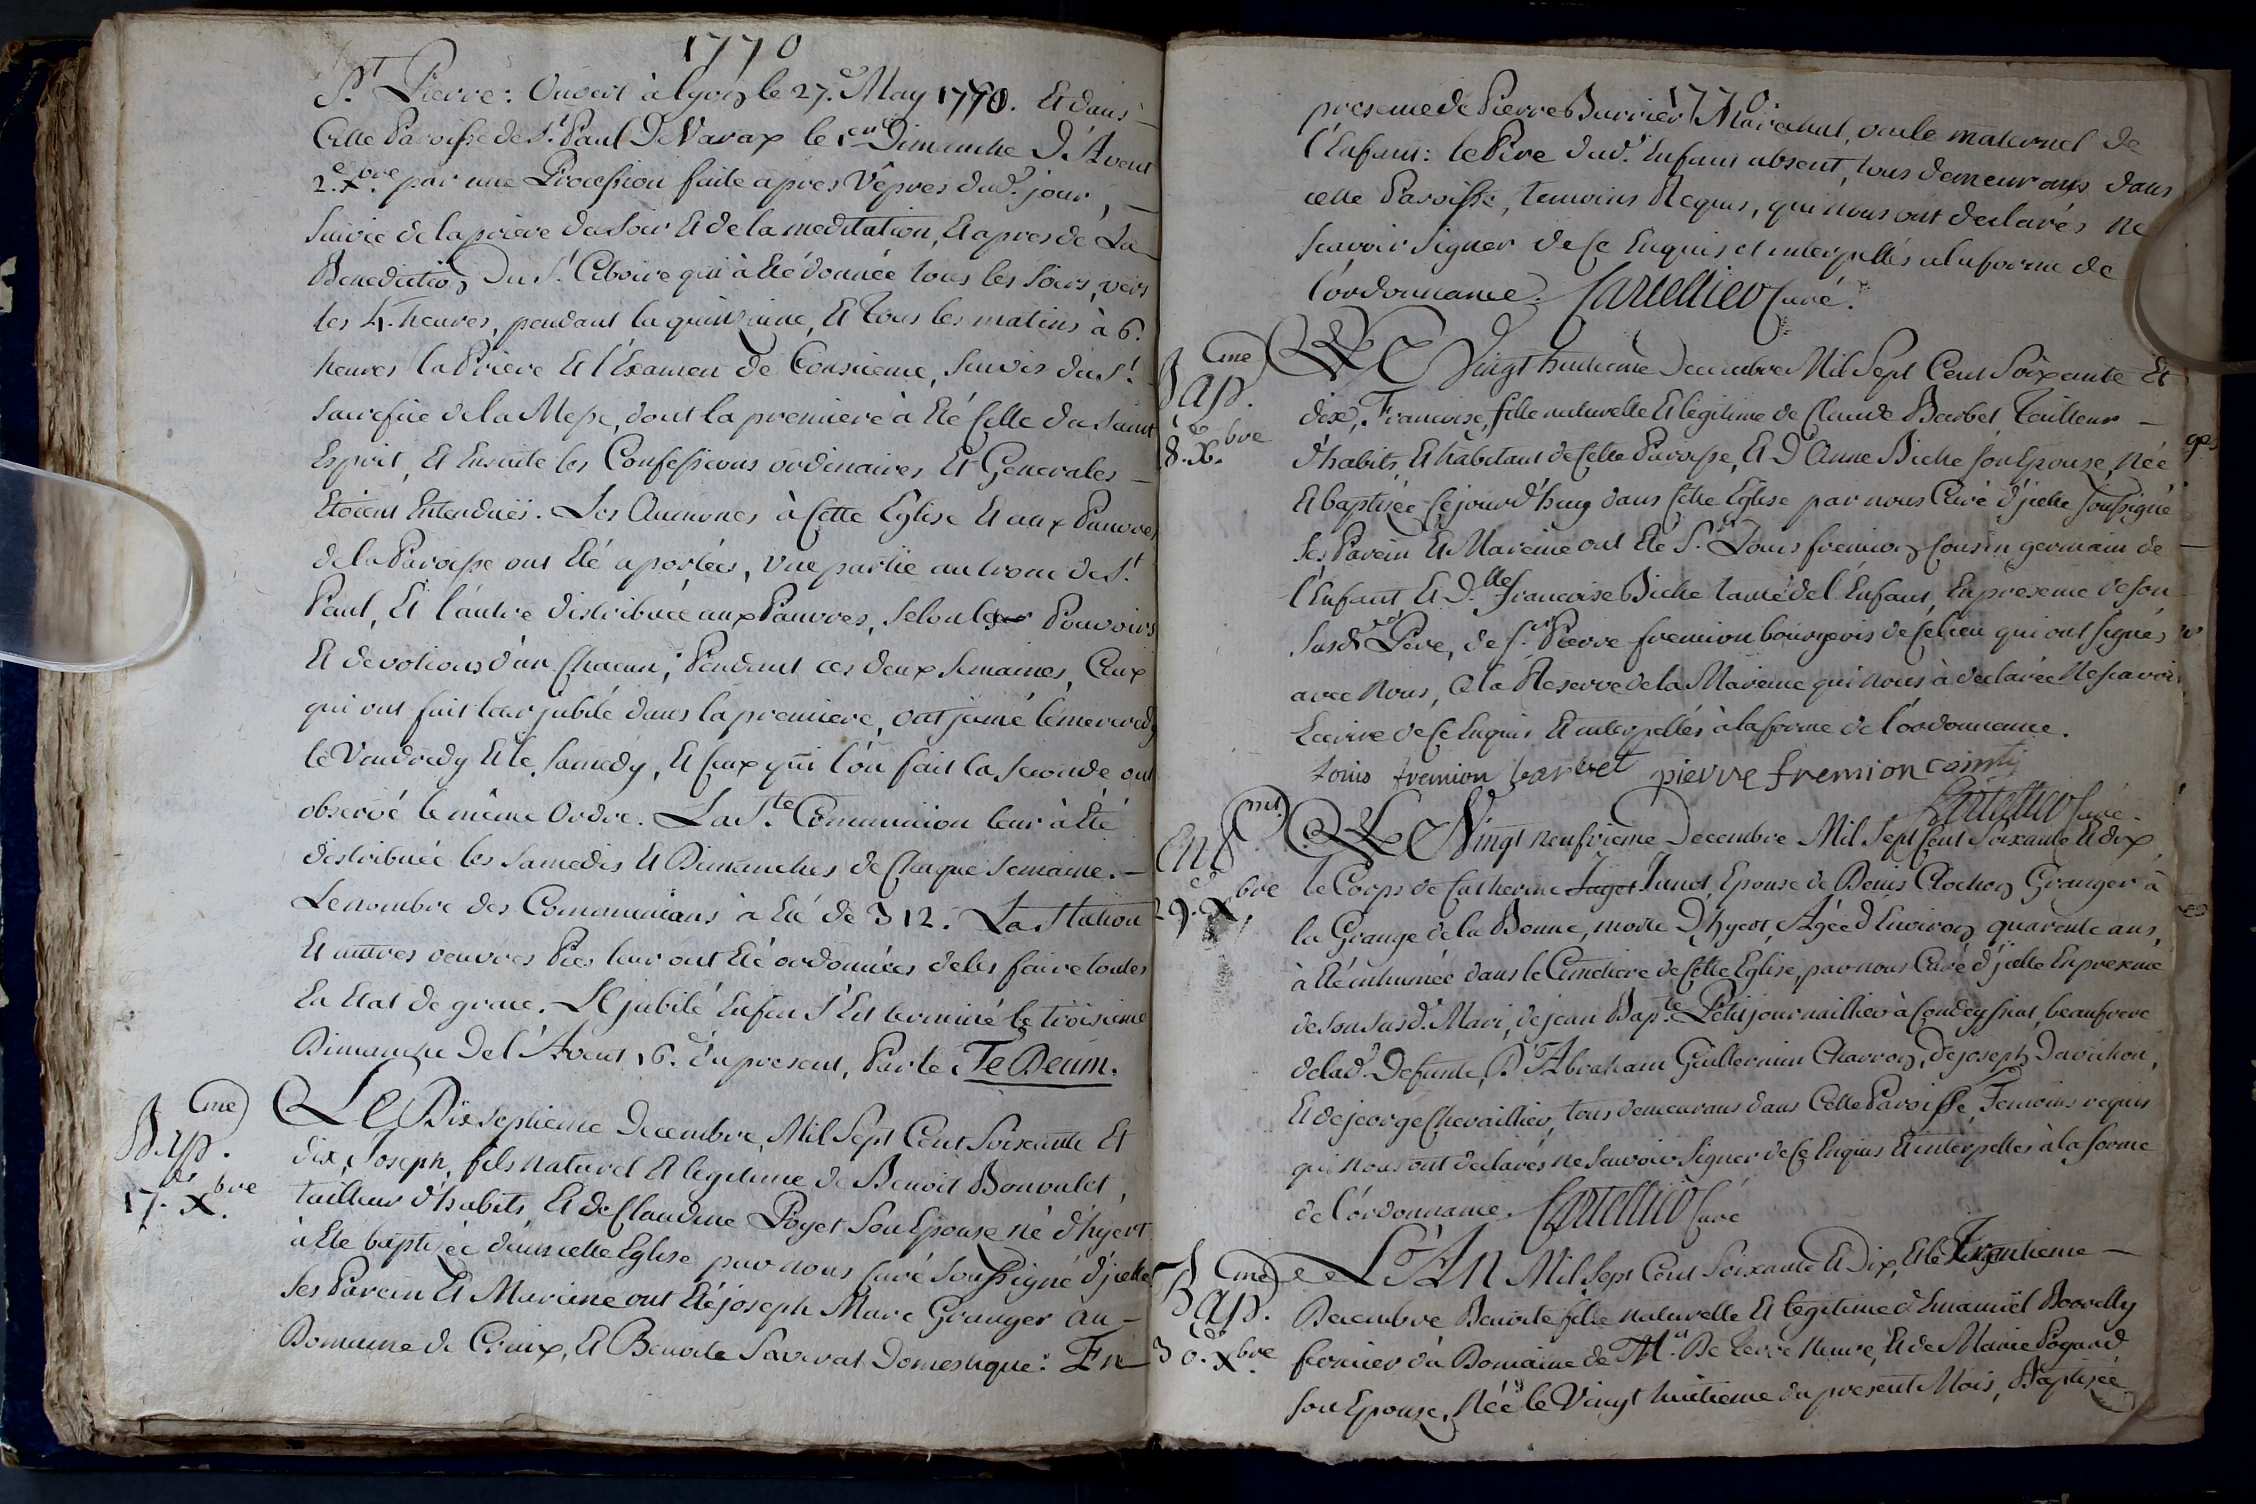 1770
St. Pierre: Ouvert à Lyon le 27.e May 1770. Et dans
Cette Paroisse de St. Paul De Varax le 1.er Dimanche D'Avent
2.e Xbre. par une Procession faite apres Vêpres dud. jour,
suivie de la priere du soir Et de la meditation, Et apres de La
Benediction Du St. Ciboire qui à Eté donnée tous les soirs, vers
les 4. heures, pendant la quinzaine, Et Tous les matins à 6.
heures la Priere Et l'Examen de Consience, suivis du St.
sacrefice de la Messe, dont la premiere à Eté Celle du Saint
Esprit, Et Ensuite les Confessions ordinaires Et Generales
Etoient Entenduës. Les Aumones à Cette Eglise Et aux Pauvres
de la Paroisse ont Eté aportées, Une partie au tronc de St.
Paul, Et l'autre distribuée aux Pauvres, selon les Pouvoirs
Et devotions d'un Chacun; Pendant ces deux semaines, Ceux
qui ont fait leur jubilé dans la premiere, ont jeuné le mercredy
le Vendredy Et le samedy, Et Ceux qui l'on fait la seconde ont
observé le même Ordre. La Ste. Communion leur à Eté
distribuée les samedis Et Dimanches de Chaque semaine.
Le nombre des Communians à Eté de 312. La Station
Et autres oeuvres Pies leur ont Eté ordonnées de les faire toutes
En Etat de grace. Le jubilé Enfin s'Est terminé le troisieme
Dimanche De l'Avent 16. du present, Par le Te Deum.
Bap.me
17. Xbre.
Le Dix septieme Decembre, Mil Sept Cent Soixante Et
dix, Joseph, fils naturel Et legitime de Benoit Bonvalet,
tailleur d'habits Et de Claudine Poyet son Epouse né d'hyert
à Eté baptisée dans cette Eglise par nous Curé soussigné d'jcelle
ses Parein Et Mareine ont Eté joseph Marc Granger au
Domaine de Croix, Et Benoite Savarat Domestique: En
1770.
presence de Pierre Burrier Maréchal, oncle maternel de
l'Enfant: le Pere dud. Enfant absent, tous demeurans dans
cette Paroisse, temoins Requis, qui nous ont declarés ne
scavoir signer de Ce Enquis et interpellés a la forme de
l'ordonnance. Cartellier Curé.
Bap.me
8. Xbre.
Le Vingt huitieme Decembre Mil Sept Cent Soixante Et
dix, Francoise, fille naturelle Et legitime de Claude Barbet, Tailleur
d'habits Et habitant de Cette Paroisse, Et D'Anne Biche son Epouse, Née
Et baptisée Ce jourd'huy dans Cette Eglise par nous Curé d'jcelle soussigné
ses Parein Et Mareine ont Eté Sr. Louis fremion Cousin germain de
l'Enfant Et Dlle. Francoise Biche tante de l'Enfant, En presence de son
susd. Pere, de Sr. Pierre fremion bourgeois de Ce lieu qui ont signés
avec nous, a la Reserve de la Mareine qui nous à declarée Ne scavoir
Ecrire de Ce Enquis Et interpellés à la forme de l'ordonnance.
Louis fremion barbet pierre fremion
Cartellier Curé.
Ent.
29. Xbre.
Le Vingt neufvieme Decembre Mil Sept Cent Soixante Et dix,
le Corps de Catherine Jagot Junet, Epouse de Denis Clochon Granger à
la Grange de la Bonne, morte D'hyert, Agée d'Environ quarente ans,
à Eté inhumée dans le Cimetiere de Cette Eglise, par nous Curé d'jcelle En presence
de son susd. Mari, de jean Bapte. Petit journaillier à Condeyssiat, beaufrere
de lad. Defunte, D'Abraham Guillermin Charron, de joseph Davichon,
Et de jeorge Chevaillier, tous demeurans dans Cette Paroisse, Temoins requis
qui nous ont declarés ne scavoir signer de Ce Enquis Et interpellés à la forme
de l'ordonnance. Cartellier Curé
Bap.me
30. Xbre.
L'An Mil Sept Cent Soixante Et Dix, Et le Trentieme
Decembre Benoite fille naturelle Et legitime d'Emanuël
fermier du Domaine de Mr. De Terre Neuve, Et de Marie Pogand
son Epouse, Née le Vingt huitieme du present Mois, Baptisée